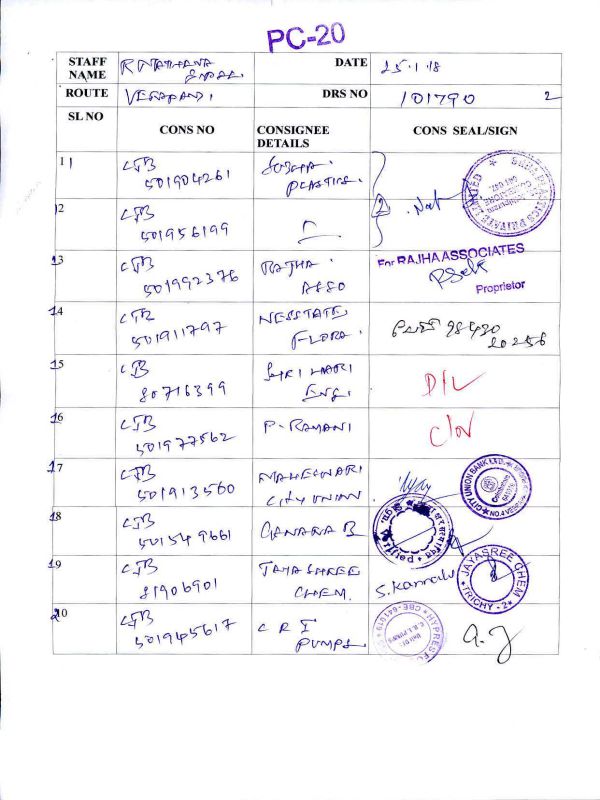 PC-20
STAFF NAME
DATE 25.1.18
ROUTE VERAPANDI
DRS NO 101790 2
SL NO
CONS NO
CONSIGNEE DETAILS
CONS SEAL/SIGN
11 CJB 501904261
PLASTICS.
12 CJB 501956199
13 CJB 501992376
RAJHA ASSO
For RAJHA ASSOCIATES
Proprietor
14 CJB 501911797
FLORA.
98430
20256
15 CJB 80716399
SRI HARI ENG.
D/L
16 CJB 501977562
P. RAMANI
17 CJB 501913560
MAHESWARI CITY UNION
CITY UNION BANK LTD.
18 CJB 501549661
CANARA B
19 CJB 81906901
JAYASHREE CHEM.
S. Kamala
JAYASREE CHEM
TRICHY - 2
20 CJB 501945617
C R I PUMPS